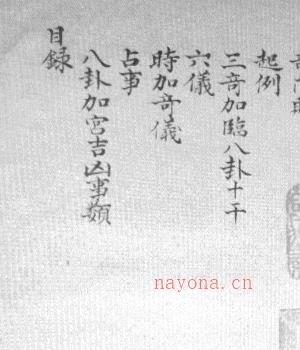 起例
三竒加臨八卦十干
六儀
時加竒儀
占事
八卦加宮吉凶事類
目録
nayona.cn